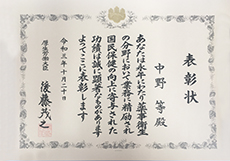 表彰状
中野 等殿
あなたは永年にわたり薬事衛生
の分野において業務に精励され
国民保健の向上に寄与された
功績は誠に顕著なものがありま
すのでここに表彰します
令和三年十月二十日
厚生労働大臣
後藤茂之